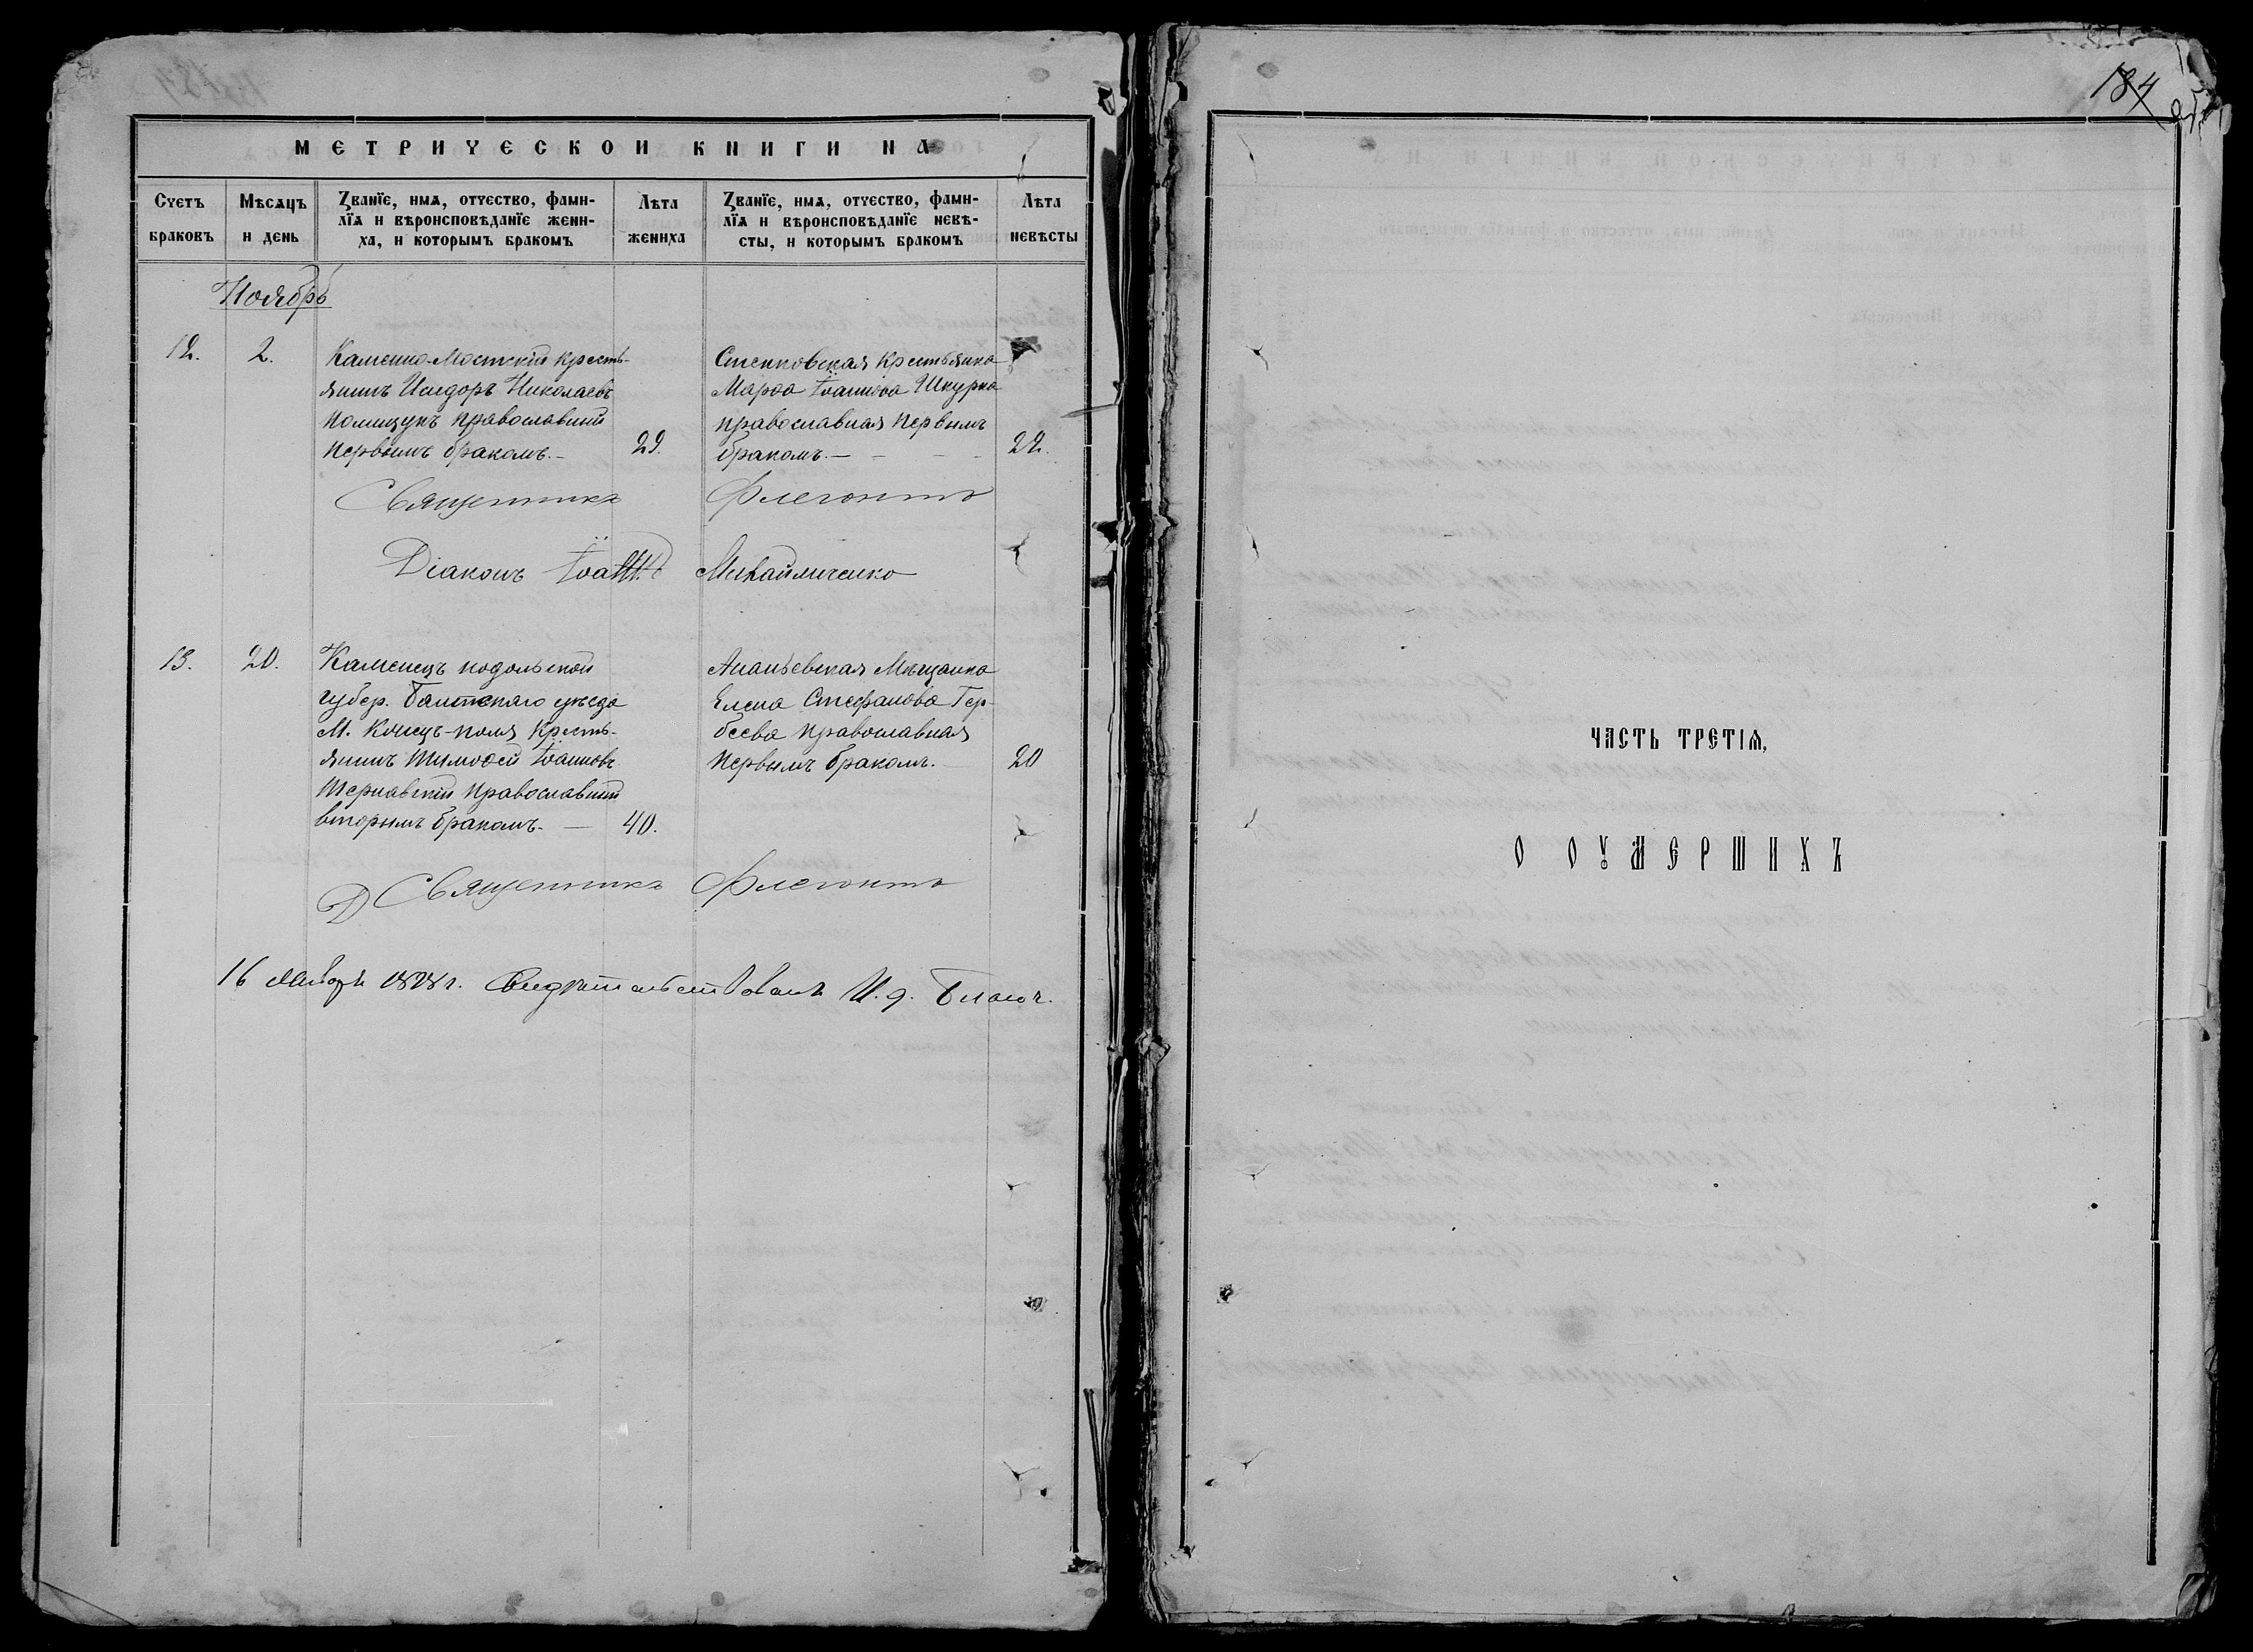 МЕТРИЧЕСКОЙ КНИГИ НА
Счетъ браковъ
Мѣсяцъ и день
Званїе, имѧ, отчество, фами-
лїѧ и вѣроисповѣданїе жени-
ха, и которымъ бракомъ
Лѣта жениха
Званїе, имѧ, отчество, фами-
лїѧ и вѣроисповѣданїе невѣ-
сты, и которымъ бракомъ
Лѣта невѣсты
Ноябрь
12.
2.
Каменно-Мостскій кресть-
янинъ Исидоръ Николаевъ
Полищукъ православный
первымъ бракомъ.—
29.
Степковская крестьянка
Марѳа Іоаннова Шкурка
православная первымъ
бракомъ.—
22.
Священникъ Флегонтъ
Діаконъ Іоаннъ Михайличенко
13.
20.
Каменецъ подольской
губер. Балтскаго уѣзда
м. Конецъ-поля кресть-
янинъ Тимоѳей Іоанновъ
Тернавскій православный
вторымъ бракомъ.—
40.
Ананьевская мѣщанка
Елена Стефанова Гер-
беева православная
первымъ бракомъ.
20
Д
Священникъ Флегонтъ
16 Января 1878 г. Свидѣтельствовалъ И. д. Благоч.
184
ЧАСТЬ ТРЕТІѦ,
О ОУМЕРШИХЪ